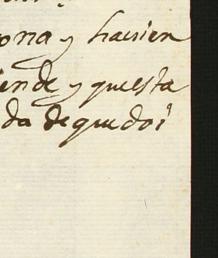 ona y hacien
iende y questa
da de que doi